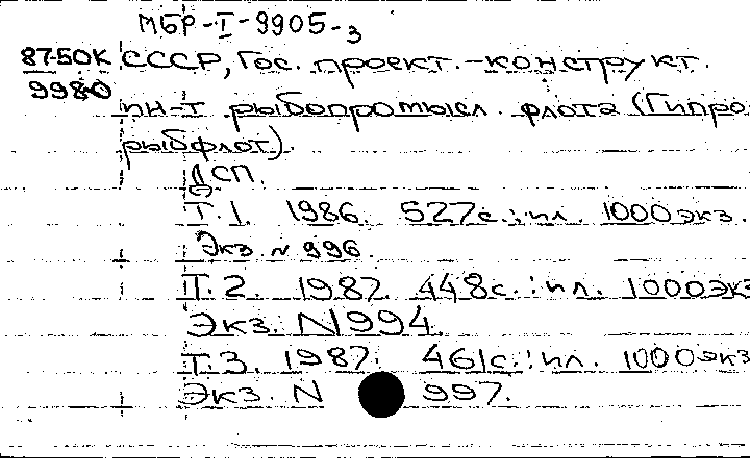 МБР-I-9905-3
87-50К СССР, Гос. проект.-конструкт.
9980 ин-т рыбопромысл. флота (Гипро
рыбфлот).
ДСП.
Т.1. 1986. 527с.: ил. 1000 экз.
Экз. N 996.
Т.2. 1987. 448с.: ил. 1000 экз
Экз. N 994.
Т.3. 1987. 461с.: ил. 1000 экз
Экз. N 997.